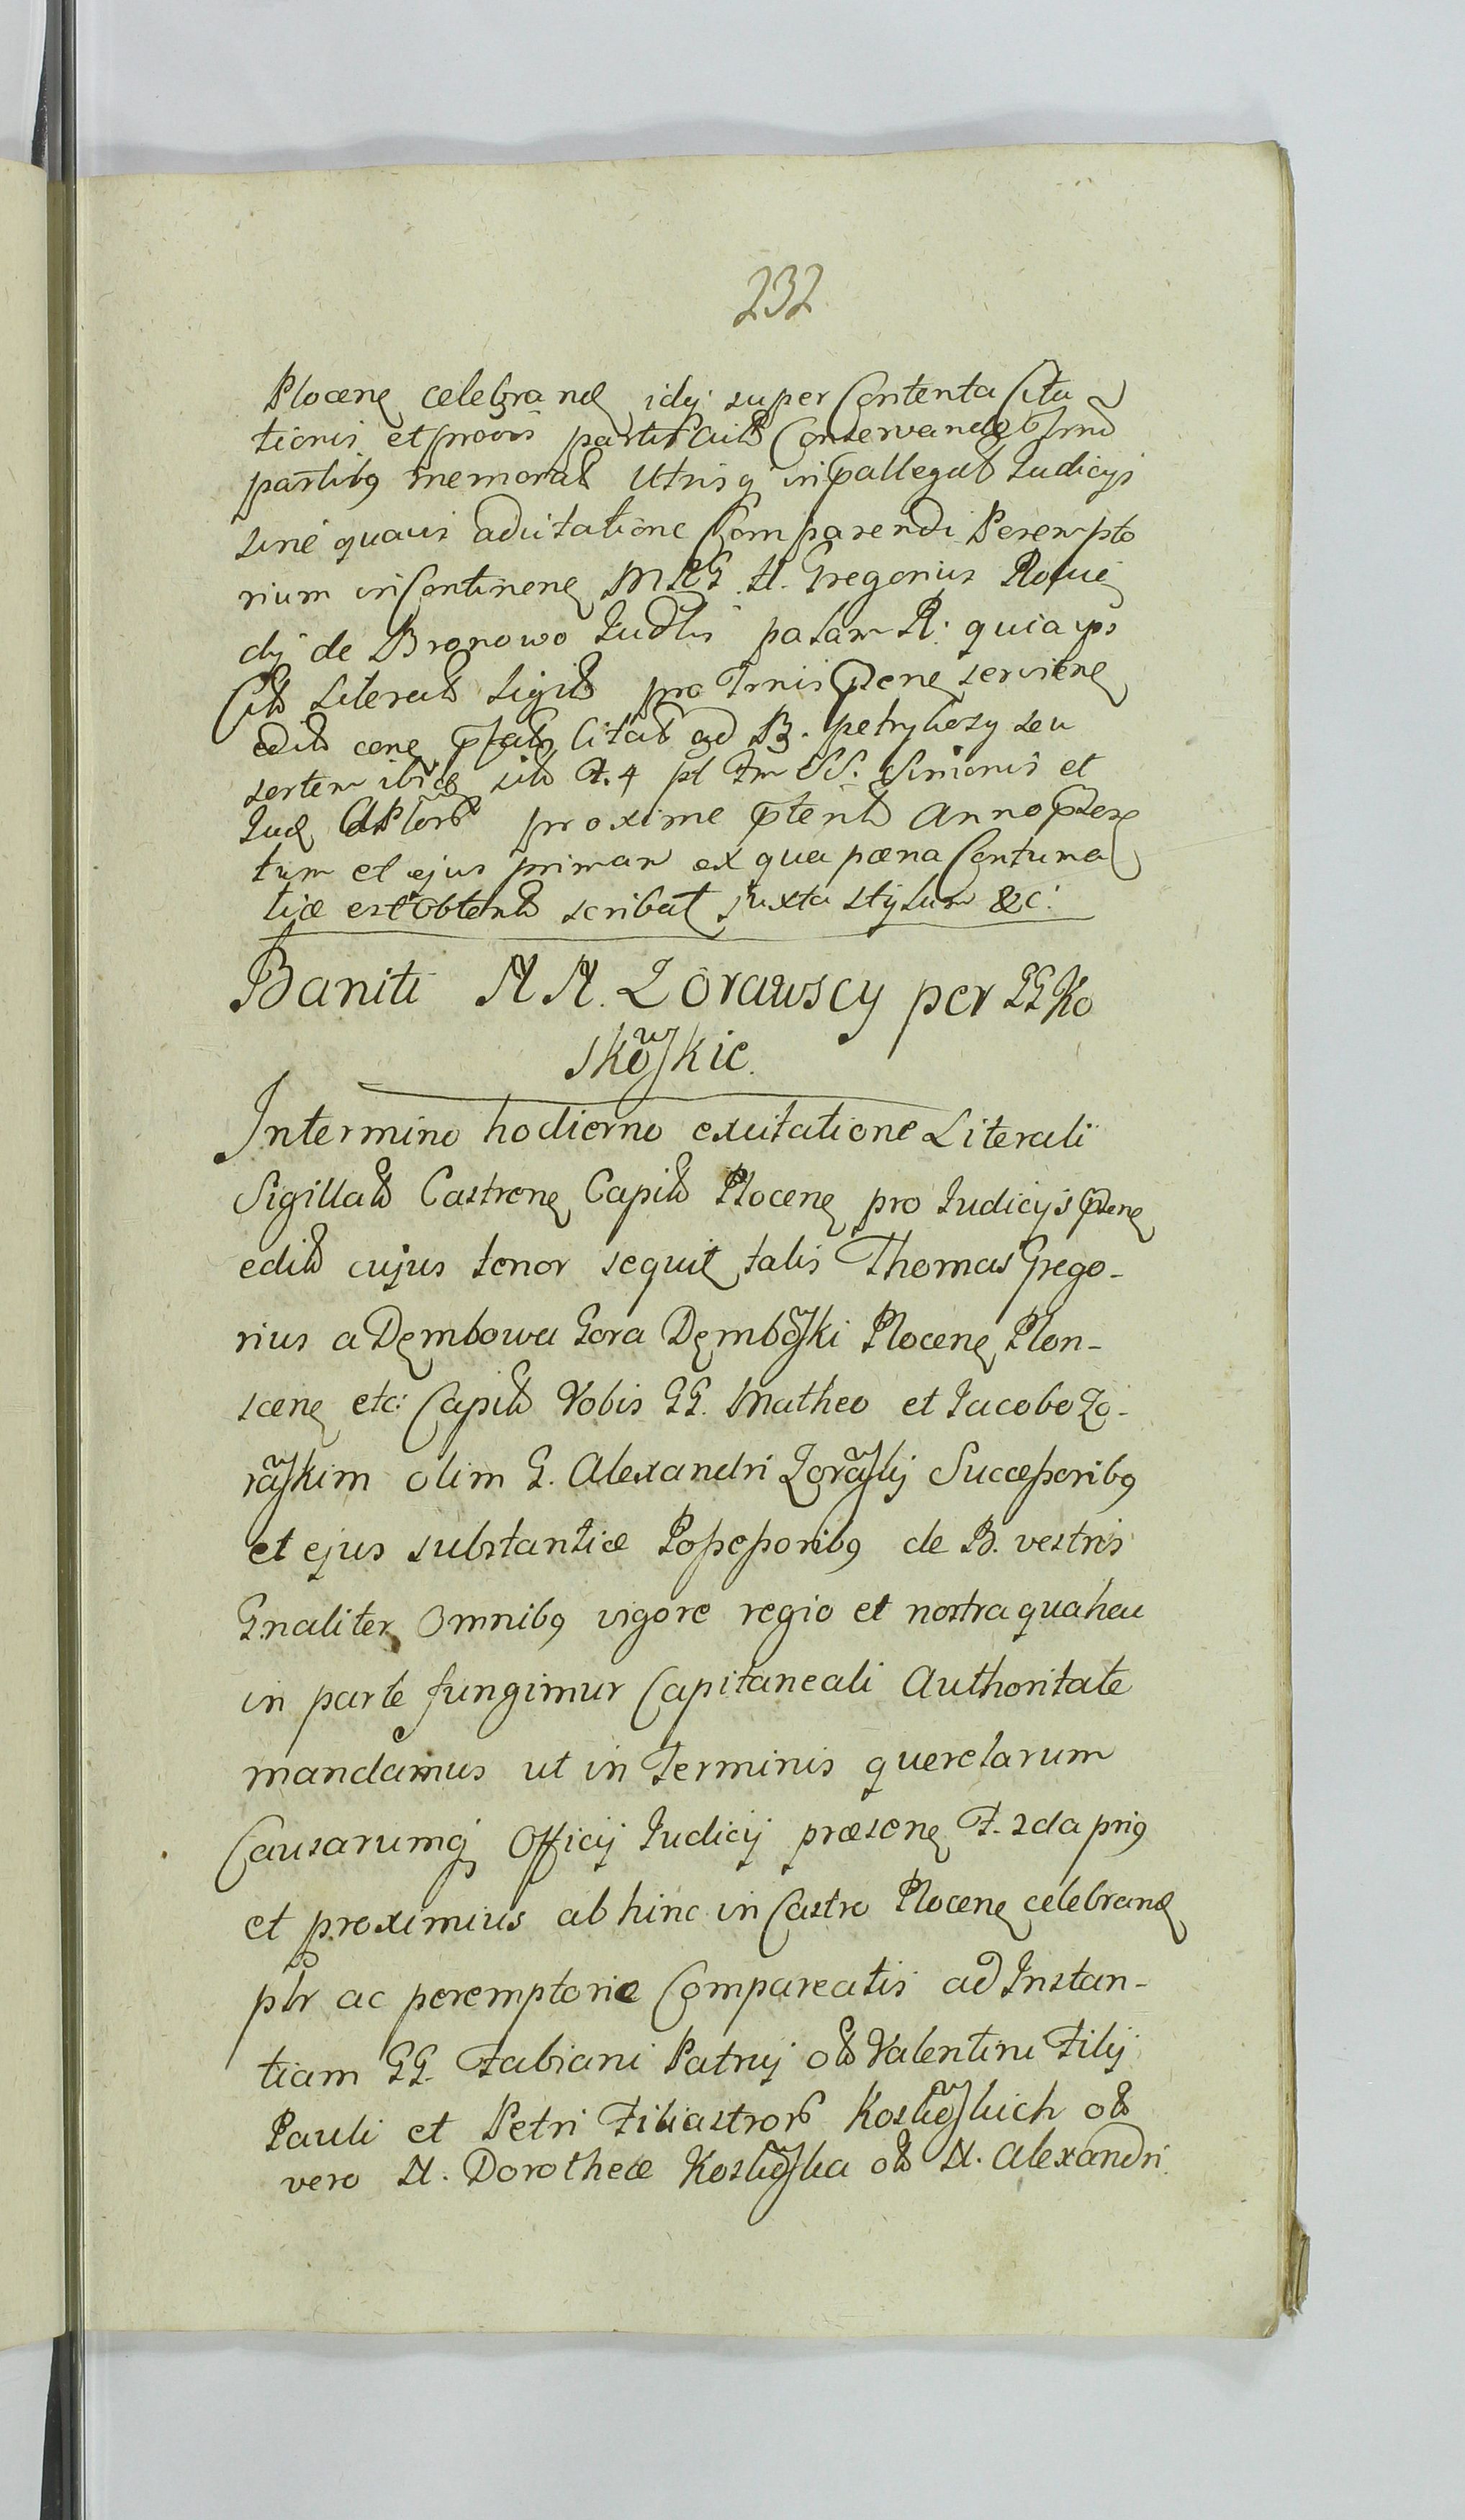 232
Plocen celebrand idq super Contenta Cita
tionis et partib Conservand
partibq memorat Utrisq in pallegat Judicijs
sine quavis adcitatione Comparendi Perempto
rium in Continen MRG N. Gregorius
dij de Bronowo Judlr palam R: quia ips
Cit Literat Sigil pro Trnis pten servien
edit cone citat ad B. petrykozy seu
sortem ibid sit F. 4 pt Fm SS. Simonis et
Jud APlor proxime pterit Anno
tum et ejus primam ex qua pæna Contuma
tiæ est obtent scribat juxta stylum &c:
Baniti N N. Zorawscy per GG Ko
skowskie.
Intermino hodierno excitatione Literali
Sigillat Castren Capit Plocen pro Judicijs pten
edit cujus tenor sequit talis Thomas Grego-
rius a Dembowa Gora Dembowski Plocen Plon-
scen etc: Capit Vobis GG. Matheo et Jacobo Zo-
rawskim olim G. Alexandri Zorawskij Successoribq
et ejus substantiæ Possessoribq de B. vestris
Gnaliter Omnibq vigore regio et nostra qua hau
in parte fungimur Capitaneali Authoritate
mandamus ut in Terminis querelarum
Causarumq Officij Judicij præsen F. 2da priq
et proximius ab hinc in Castro Plocen celebrand
ptr ac peremptorie Compareatis ad Instan-
tiam GG. Fabiani Patruj ot Valentini Filij
Pauli et Petri Filiastror Koskowskich ot
vero N. Dorotheæ Koskowska ot N. Alexandri